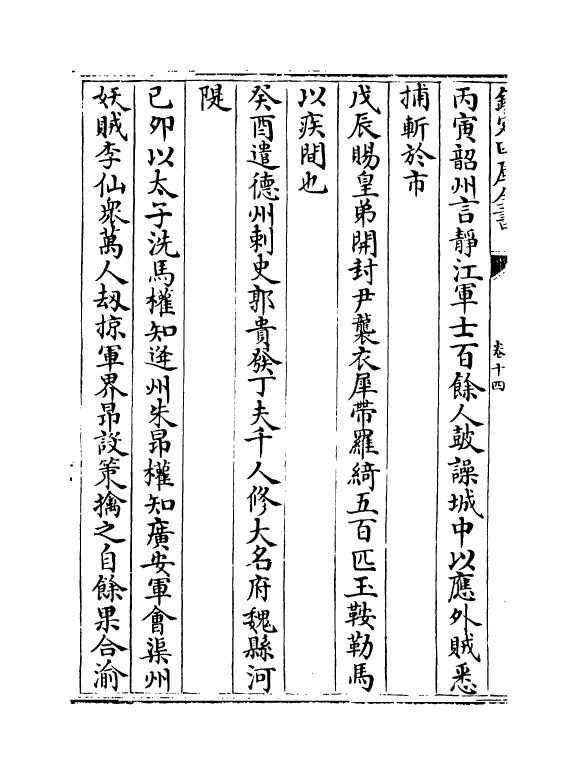 欽定四庫全書
卷十四
丙寅韶州言靜江軍士百餘人鼓譟城中以應外賊悉
捕斬於市
戊辰賜皇弟開封尹襲衣犀帶羅綺五百匹玉鞍勒馬
以疾間也
癸酉遣德州刺史郭貴發丁夫千人修大名府魏縣河
隄
己夘以太子洗馬權知蓬州朱昂權知廣安軍會渠州
妖賊李仙衆萬人刼掠軍界昂設策擒之自餘果合渝